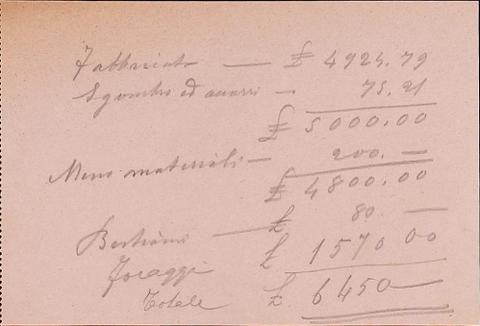 Fabbricato — £ 4924.79
Sgombro ed avarii — 75.21
£ 5000.00
Meno materiali — 200.—
£ 4800.00
Bestiami — £ 80 —
Foraggi £ 1570 00
Totale £ 6450 —